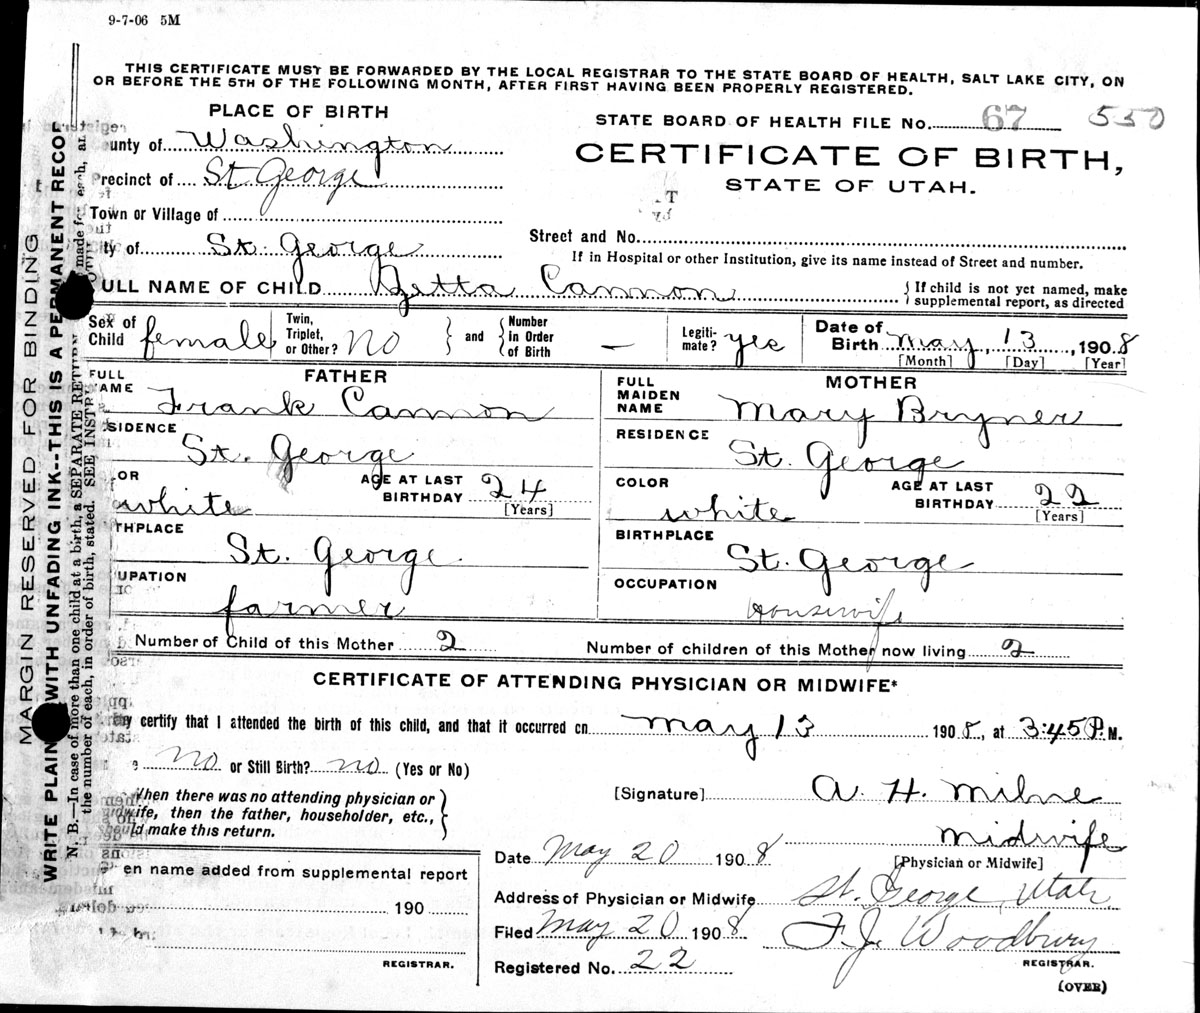 9-7-06 5M
THIS CERTIFICATE MUST BE FORWARDED BY THE LOCAL REGISTRAR TO THE STATE BOARD OF HEALTH, SALT LAKE CITY, ON
OR BEFORE THE 5TH OF THE FOLLOWING MONTH, AFTER FIRST HAVING BEEN PROPERLY REGISTERED.
PLACE OF BIRTH
STATE BOARD OF HEALTH FILE No. 67 550
unty of Washington
CERTIFICATE OF BIRTH,
Precinct of St George
STATE OF UTAH.
Town or Village of
ity of St. George
Street and No.
If in Hospital or other Institution, give its name instead of Street and number.
ULL NAME OF CHILD Zetta Cannon
If child is not yet named, make
supplemental report, as directed
Sex of Child female
Twin, Triplet, or Other? No
and
Number In Order of Birth —
Legiti- mate? yes
Date of Birth May, 13, 1908
[Month] [Day] [Year]
FATHER
MOTHER
FULL NAME Frank Cannon
FULL MAIDEN NAME Mary Bryner
SIDENCE St. George
RESIDENCE St. George
OR white
AGE AT LAST BIRTHDAY 24 [Years]
COLOR white
AGE AT LAST BIRTHDAY 22 [Years]
THPLACE St. George
BIRTHPLACE St. George
UPATION farmer
OCCUPATION Housewife
Number of Child of this Mother 2
Number of children of this Mother now living 2
CERTIFICATE OF ATTENDING PHYSICIAN OR MIDWIFE*
by certify that I attended the birth of this child, and that it occurred on May 13 1908, at 3:45 P.M.
No or Still Birth? No (Yes or No)
When there was no attending physician or
midwife, then the father, householder, etc.,
should make this return.
[Signature] A. H. Milne
Midwife
[Physician or Midwife]
Date May 20 1908
en name added from supplemental report
190
REGISTRAR.
Address of Physician or Midwife St. George, Utah
Filed May 20 1908 F. J. Woodbury
Registered No. 22
REGISTRAR.
(OVER)
MARGIN RESERVED FOR BINDING
WRITE PLAIN WITH UNFADING INK--THIS IS A PERMANENT RECOR
N. B.—In case of more than one child at a birth, a SEPARATE RETURN made for each, and
the number of each, in order of birth, stated. SEE INSTR